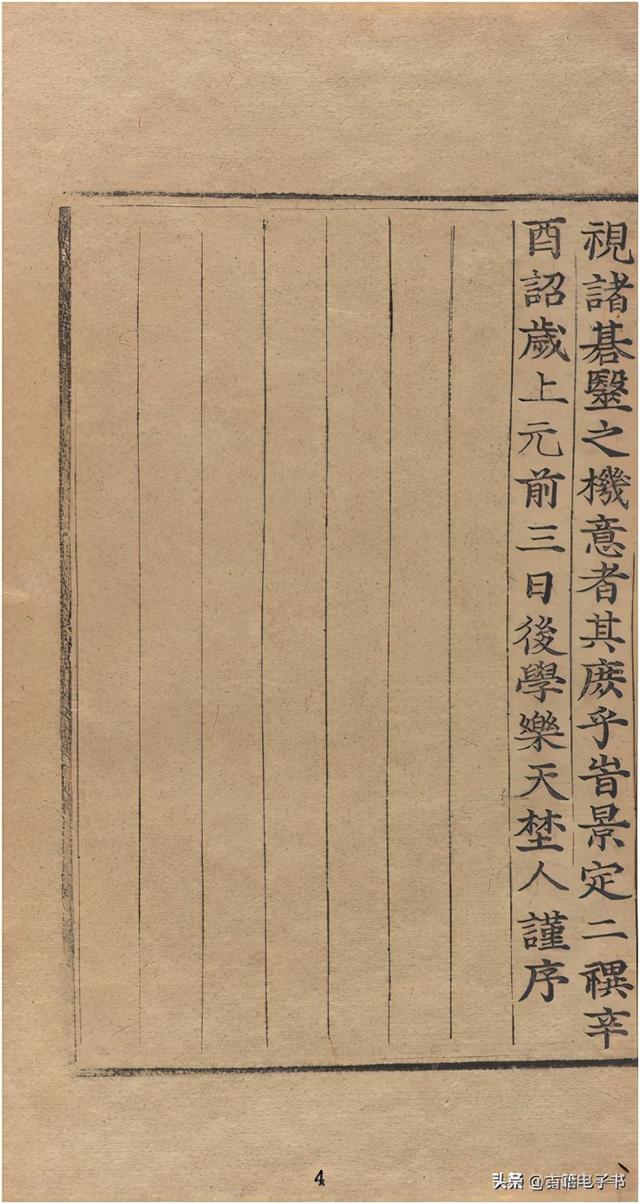 視諸碁毉之機意者其庻乎旹景定二禩辛
酉詔歲上元前三日後學樂天埜人謹序
4
头条 @古皓电子书